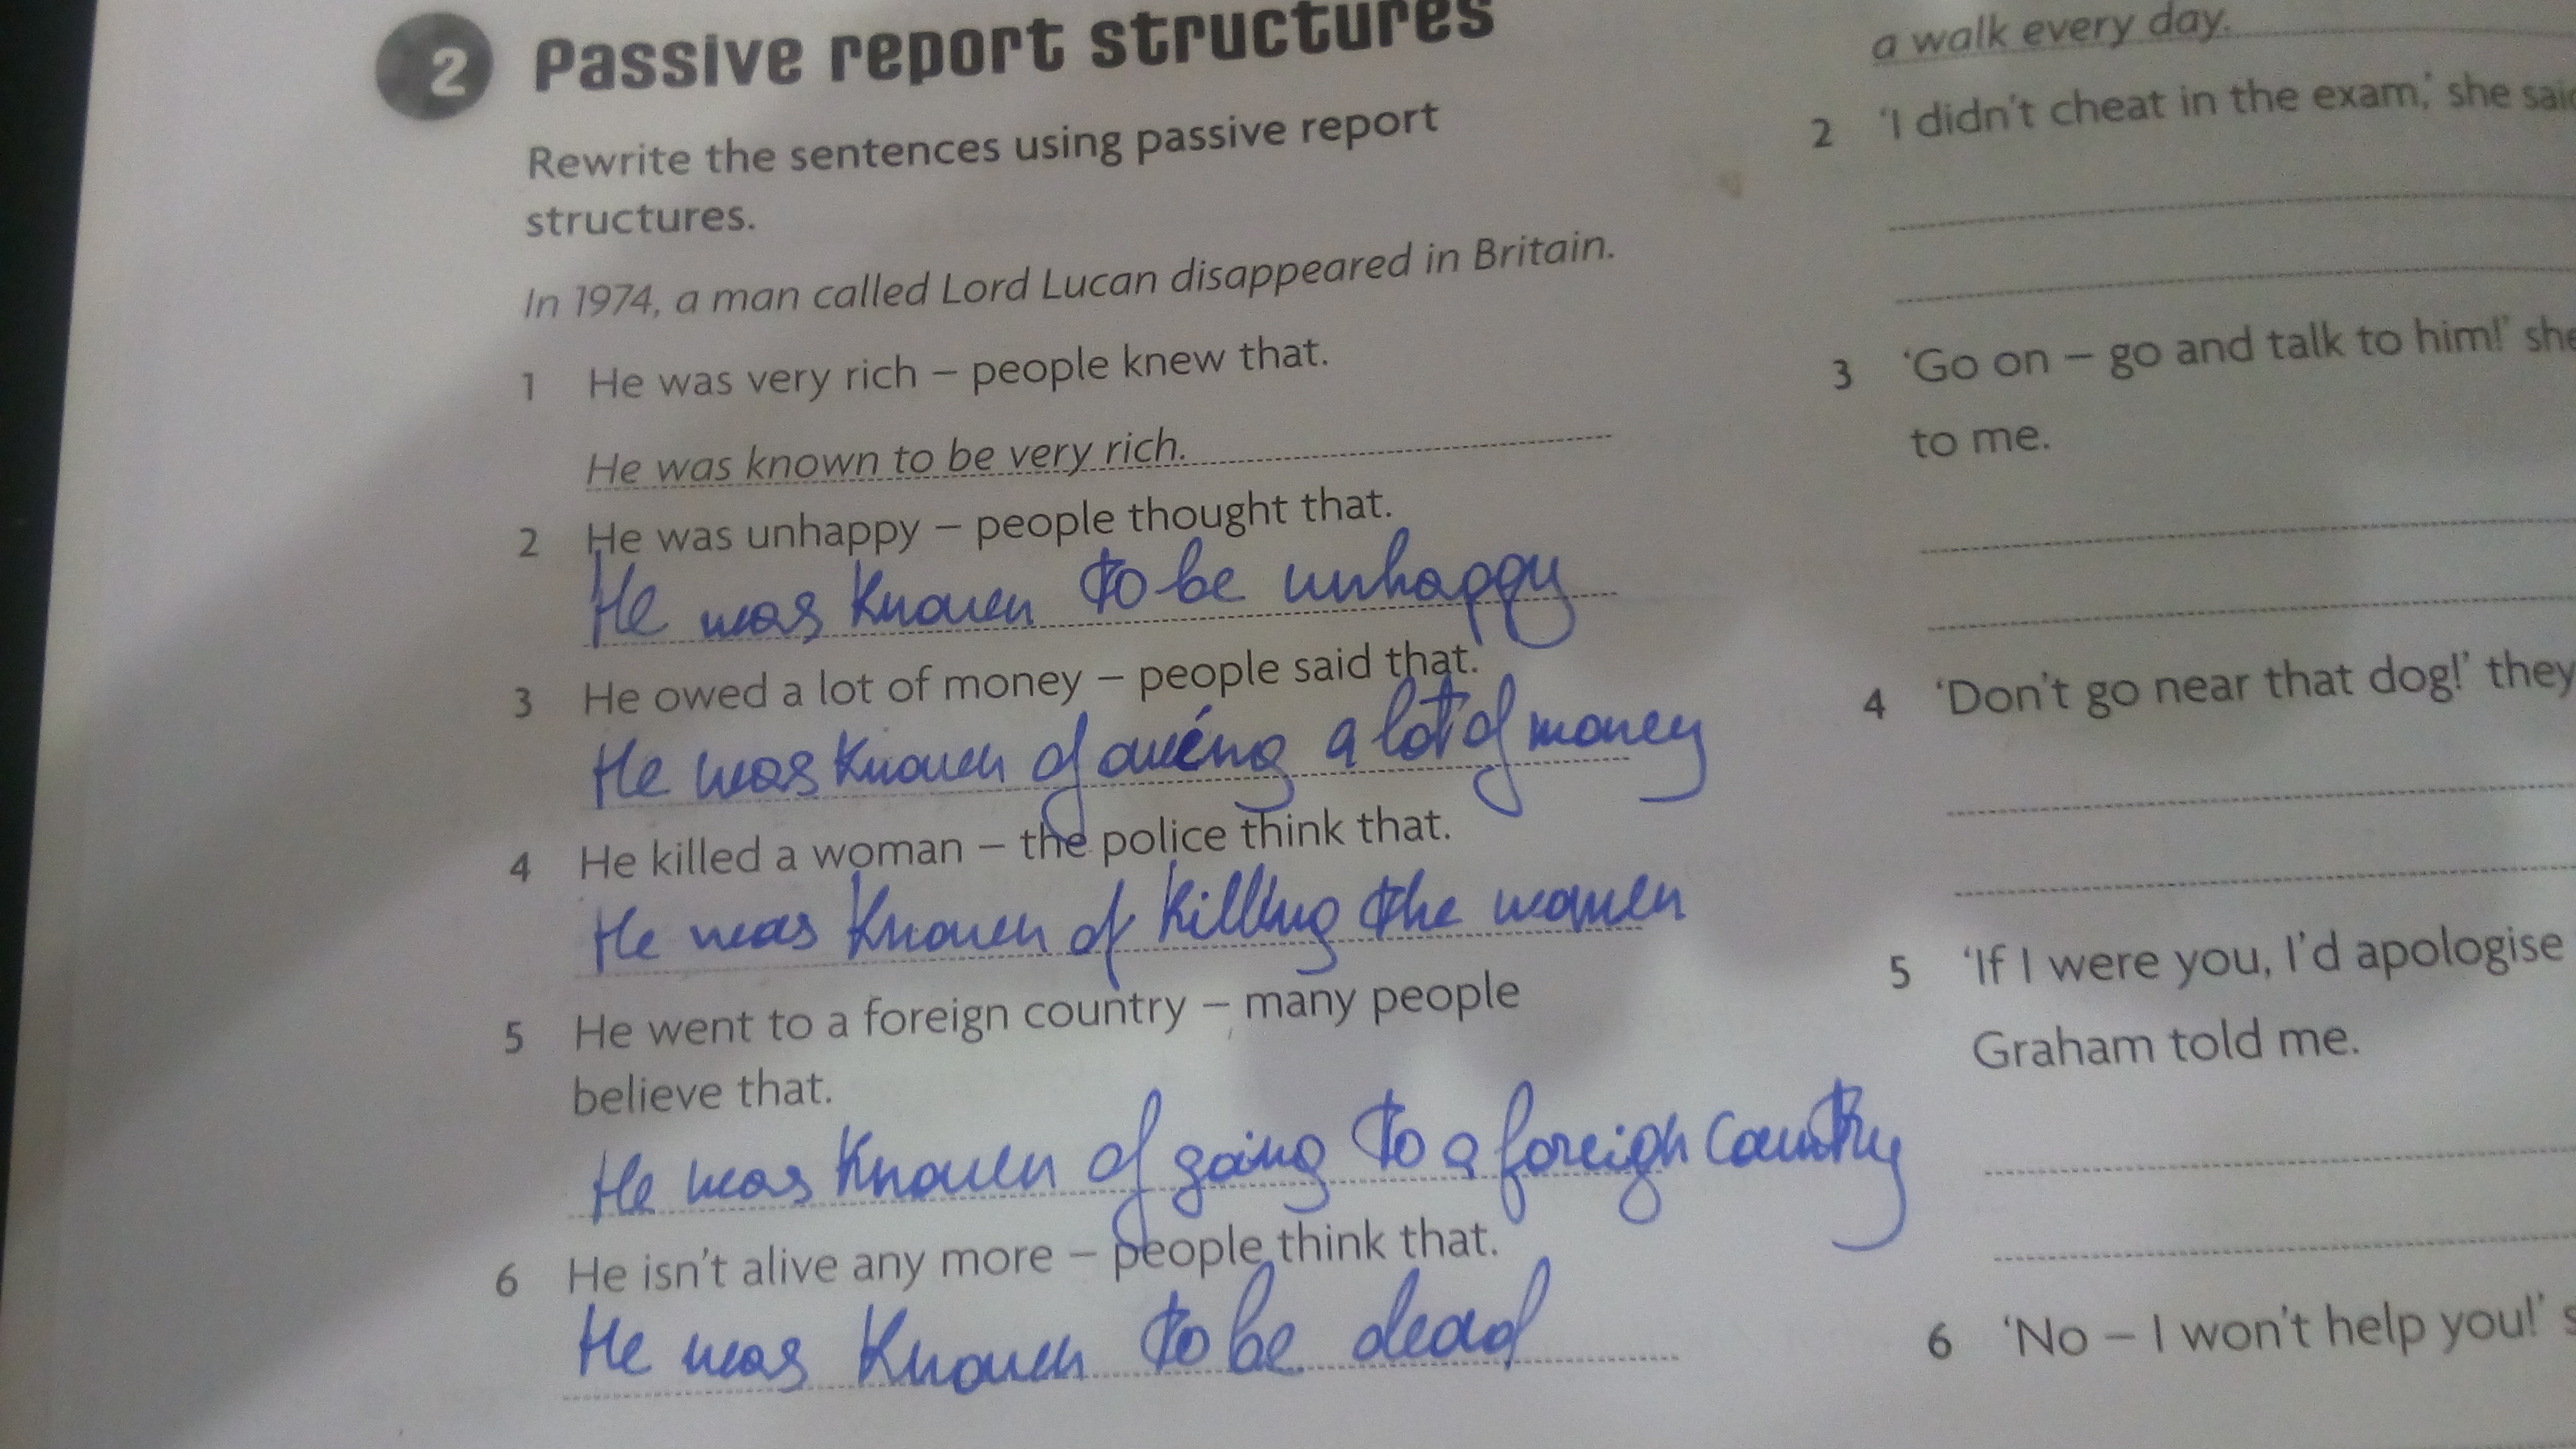 2 Passive report structures
Rewrite the sentences using passive report
structures.
In 1974, a man called Lord Lucan disappeared in Britain.
1 He was very rich – people knew that.
He was known to be very rich.
2 He was unhappy – people thought that.
He was known to be unhappy
3 He owed a lot of money – people said that.
He was known of owing a lot of money
4 He killed a woman – the police think that.
He was known of killing the women
5 He went to a foreign country – many people
believe that.
He was known of going to a foreign country
6 He isn't alive any more – people think that.
He was known to be dead
a walk every day.
2 'I didn't cheat in the exam,' she said
3 'Go on – go and talk to him!' she
to me.
4 'Don't go near that dog!' they
5 'If I were you, I'd apologise
Graham told me.
6 'No – I won't help you!' s